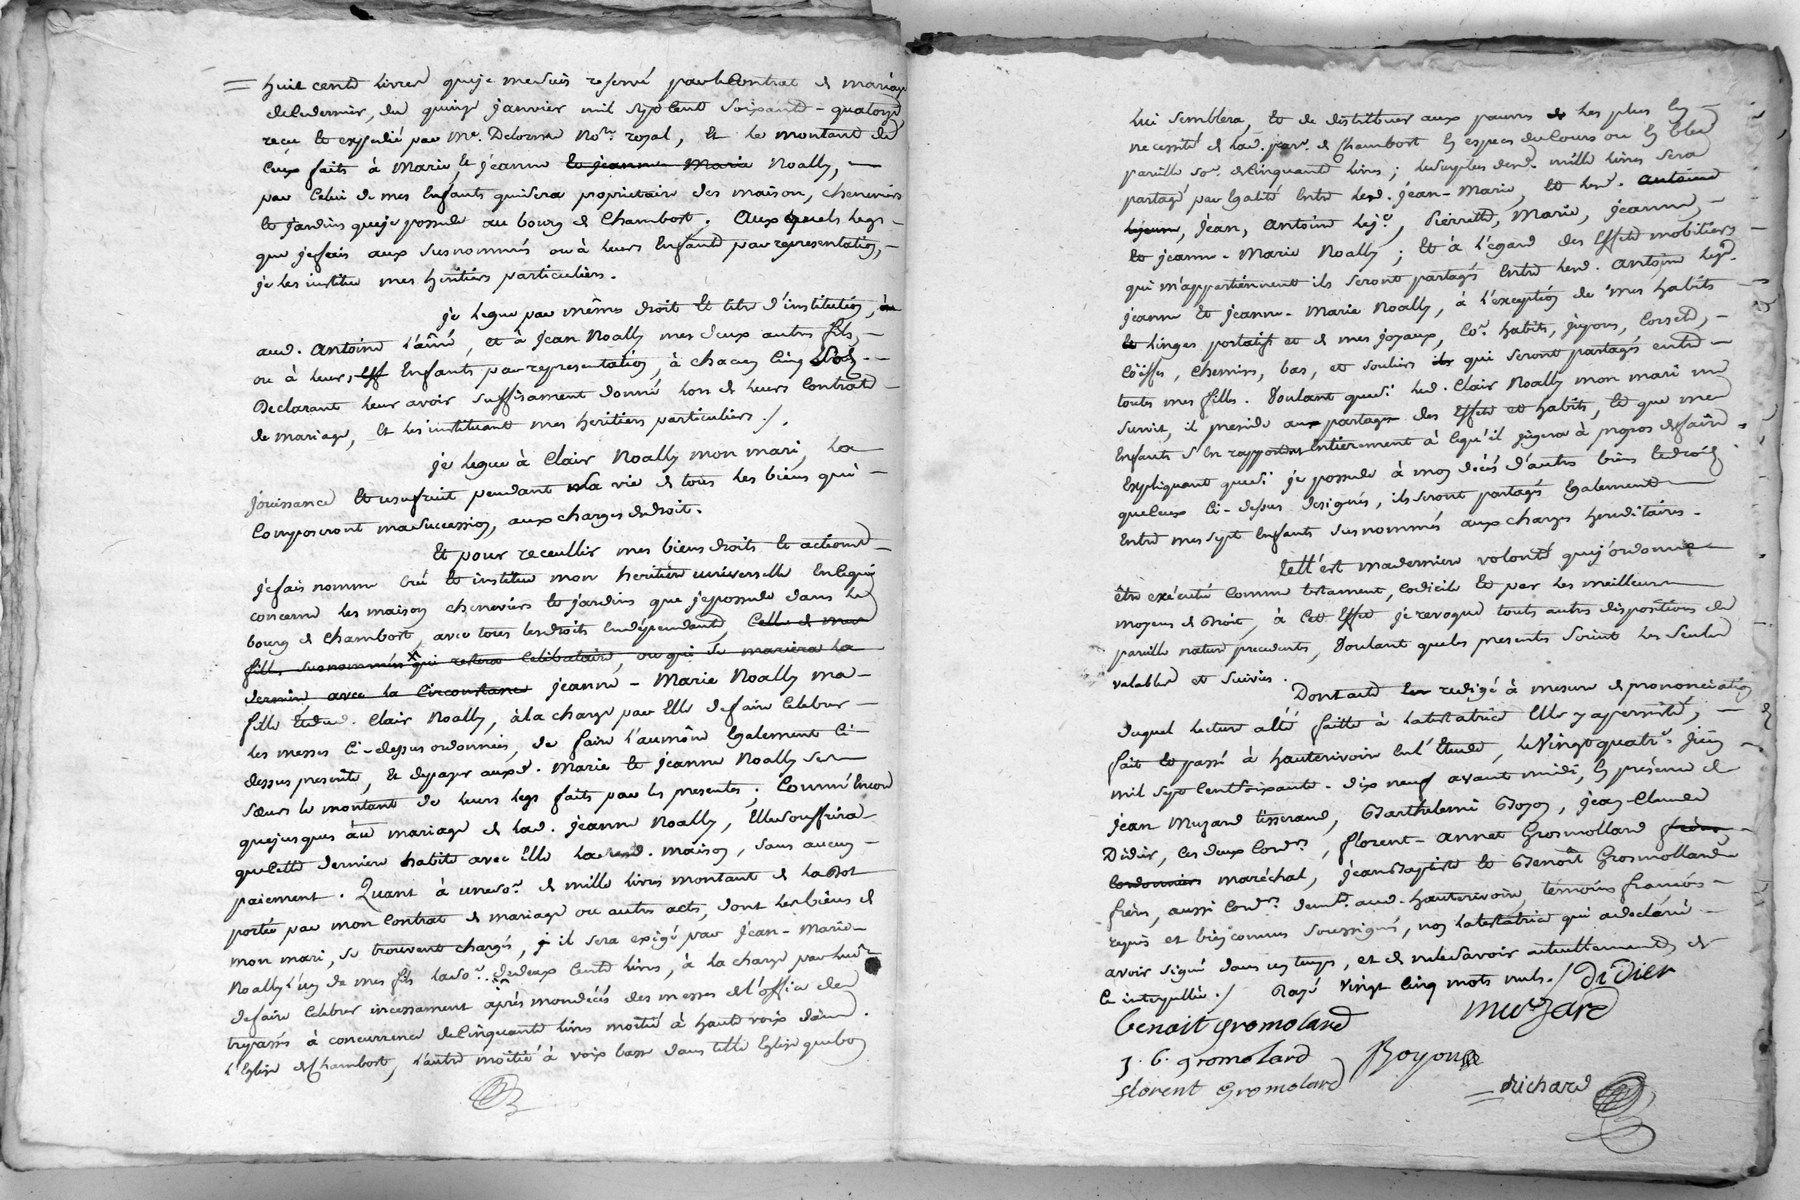 huit cents livres que je me suis reservé par le Contrat de mariage
de ce dernier, du quinze janvier mil sept cent soixante-quatorze
reçu et expedié par Me. Delorme Nore. royal, et le montant de
Ceux faits à Marie, et jeanne et jeanne Marie Noally,
par Celui de mes Enfants qui sera proprietaire des maison, cheneviers
et jardins que je possede au bourg de Chambost. Aux quels legs
que je fais aux susnommés ou à leurs Enfants par representation,
je les institue mes héritiers particuliers.
je legue par même droit et titre d'institution,
aud. Antoine l'aîné, et à Jean Noally mes deux autres fils,
ou à leurs Enfants par representation, à chacun Cinq Sols
Declarant leur avoir suffisament donné lors de leurs Contrats
de mariage, et les instituant mes heritiers particuliers /.
je legue à Clair Noally mon mari, la
jouissance et usufruit pendant sa vie de tous les biens qui
Composeront ma succession, aux charges de droit.
Et pour receullir mes biens droits et actions
je fais nomme Crée et institue mon heritiere universelle En ce qui
concerne les maison cheneviers et jardins que je possede dans le
bourg de Chambost, avec tous les droits en dépendants, Celle de mes
filles susnommées qui restera Celibataire, ou qui se mariera la
derniere, avec la Circonstance jeanne-Marie Noally ma
fille et dud. Clair Noally, à la charge par Elle de faire Celebrer
les messes Ci-dessus ordonnées, de faire l'aumône Egalement Ci-
dessus prescrite, et de payer auxd. Marie et jeanne Noally ses
sœurs le montant de leurs legs faits par les presentes; Comme Encore
que jusques au mariage de lad. jeanne Noally, Elle souffrira
que cette derniere habite avec Elle lad. maison, sans aucun
paiement. Quant à une so.e de mille livres montant de la Dot
portée par mon Contrat de mariage ou autres actes, dont les biens de
mon mari, se trouvent chargés, il sera exigé par jean-Marie
Noally l'un de mes fils la so.e de deux Cents livres, à la charge par lui
de faire Celebrer incessament après mon décés des messes de l'office des
trepassés à concurrence de Cinquante livres moitié à haute voix dans
l'Eglise de Chambost, l'autre moitié à voix basse dans telle Eglise que bon
lui semblera, et de distribuer aux pauvres les plus En
necessité de lad. par. de Chambost En especes de Cours ou En bled
pareille so.e de Cinquante livres; le surplus desd. mille livres sera
partagé par Egalité Entre led. jean-Marie, et led. antoine
lejeune, jean, antoine le je., Pierrette, Marie, jeanne,
et jeanne-Marie Noally; Et à l'égard des Effets mobiliers
qui m'appartiennent ils seront partagés Entre led. antoine le je.
jeanne et jeanne-Marie Noally, à l'exception de mes habits
et linges portatifs et de mes joyaux, Co.e habits, jupons, Corsets,
Coëffes, chemises, bas, et souliers qui seront partagés entre
toutes mes filles. Voulant que si led. Clair Noally mon mari me
survit, il preside aux partages des Effets et habits, et que mes
Enfants s'En rapportent Entierement à Ce qu'il jugera à propos de faire
Expliquant que si je possede à mon décés d'autres biens et droits
que Ceux Ci-dessus designés, ils seront partagés Egalement
Entre mes sept Enfants susnommés aux charges hereditaires.
Telle est ma derniere volonté que j'ordonne
être exécuté Comme testament, Codicile et par les meilleurs
moyens de Droit, à Cet Effet je revoque touts autres dispositions de
pareille nature precedents, Voulant que les presents soient les seules
valables et suivies.
Dont acte redigé à mesure de prononciation
duquel lecture a été faitte à la testatrice Elle y a persisté,
fait et passé à hauterivoire En l'Etude, le Vingt quatre. juin
mil sept Cent soixante-dix neuf avant midi, En présence de
jean Muzard tisserand, Barthelemi Boyon, jean Claude
Didier, les deux Cord.rs, florent-annet Grosmolland frères
Cordonniers maréchal, jean Baptiste et Benoît Grosmolland
frères, aussi Cord.rs dem.t aud. hauterivoire, témoins françois
requis et bien connus soussignés, non la testatrice qui a declaré
avoir signé dans un temps, et de ne le savoir actuellement de
Ce interpellée./ Rayé vingt Cinq mots nuls./ Didier
Benoit gromolard muzard
J. B. gromolard Boyon
florent gromolard
Richard